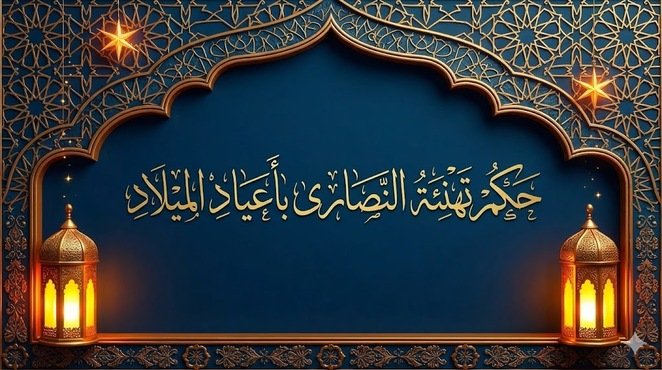 حَكَمُ تَهْنِئَةُ النَّصَارى بأَعيَادِ المِيْلَادِ